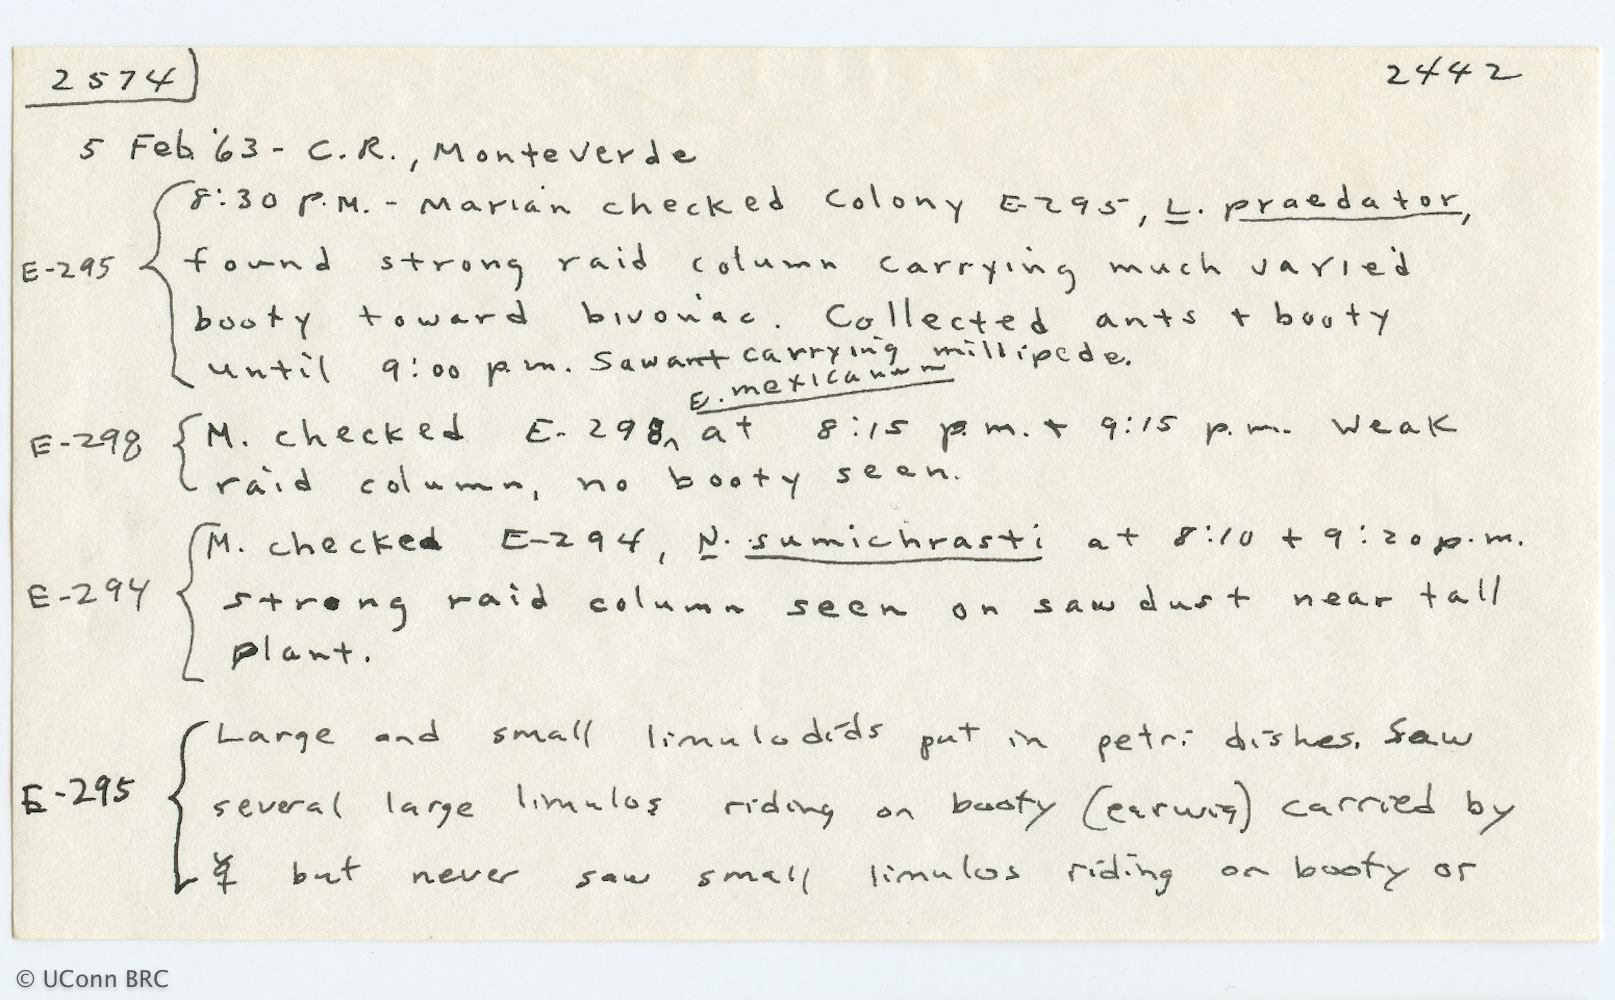 2574
2442
5 Feb. '63 - C.R., Monteverde
8:30 P.M. - Marian checked Colony E-295, L. praedator,
E-295
found strong raid column carrying much varied
booty toward bivouac. Collected ants + booty
until 9:00 p.m. Saw ant carrying millipede.
E. mexicanum
E-298
M. checked E-298, at 8:15 p.m. + 9:15 p.m. Weak
raid column, no booty seen.
M. checked E-294, N. sumichrasti at 8:10 + 9:20 p.m.
E-294
strong raid column seen on sawdust near tall
plant.
Large and small limulodids put in petri dishes. Saw
E-295
several large limulos riding on booty (earwig) carried by
☿ but never saw small limulos riding on booty or
© UConn BRC